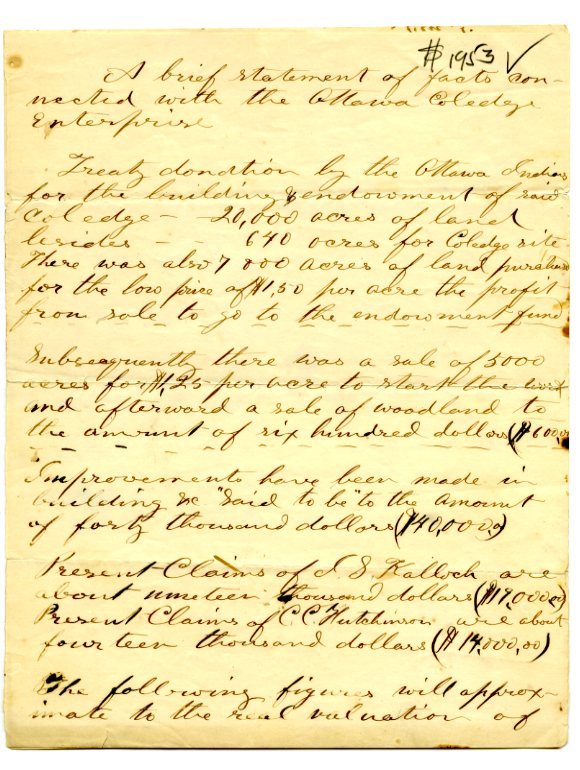 # 1953 ✓
A brief statement of facts con-
nected with the Ottawa Coledge
Enterprise
Treaty donation by the Ottawa Indians
for the building & endowment of said
Coledge - 20,000 acres of land
besides - - 640 acres for Coledge site
There was also 7000 acres of land purchase
for the low price of $1,50 per acre the profit
from sale to go to the endowment fund
Subsequently there was a sale of 5000
acres for $1,25 per acre to start the work
and afterward a sale of woodland to
the amount of six hundred dollars ($600,00
Improvements have been made in
building &c "said to be" to the amount
of forty thousand dollars ($40,000,0)
Present Claims of I S Kalloch are
about nineteen thousand dollars ($19,000,00)
Present Claims of C.C. Hutchinson are about
fourteen thousand dollars ($14,000,00)
The following figures will approx-
imate to the real valuation of